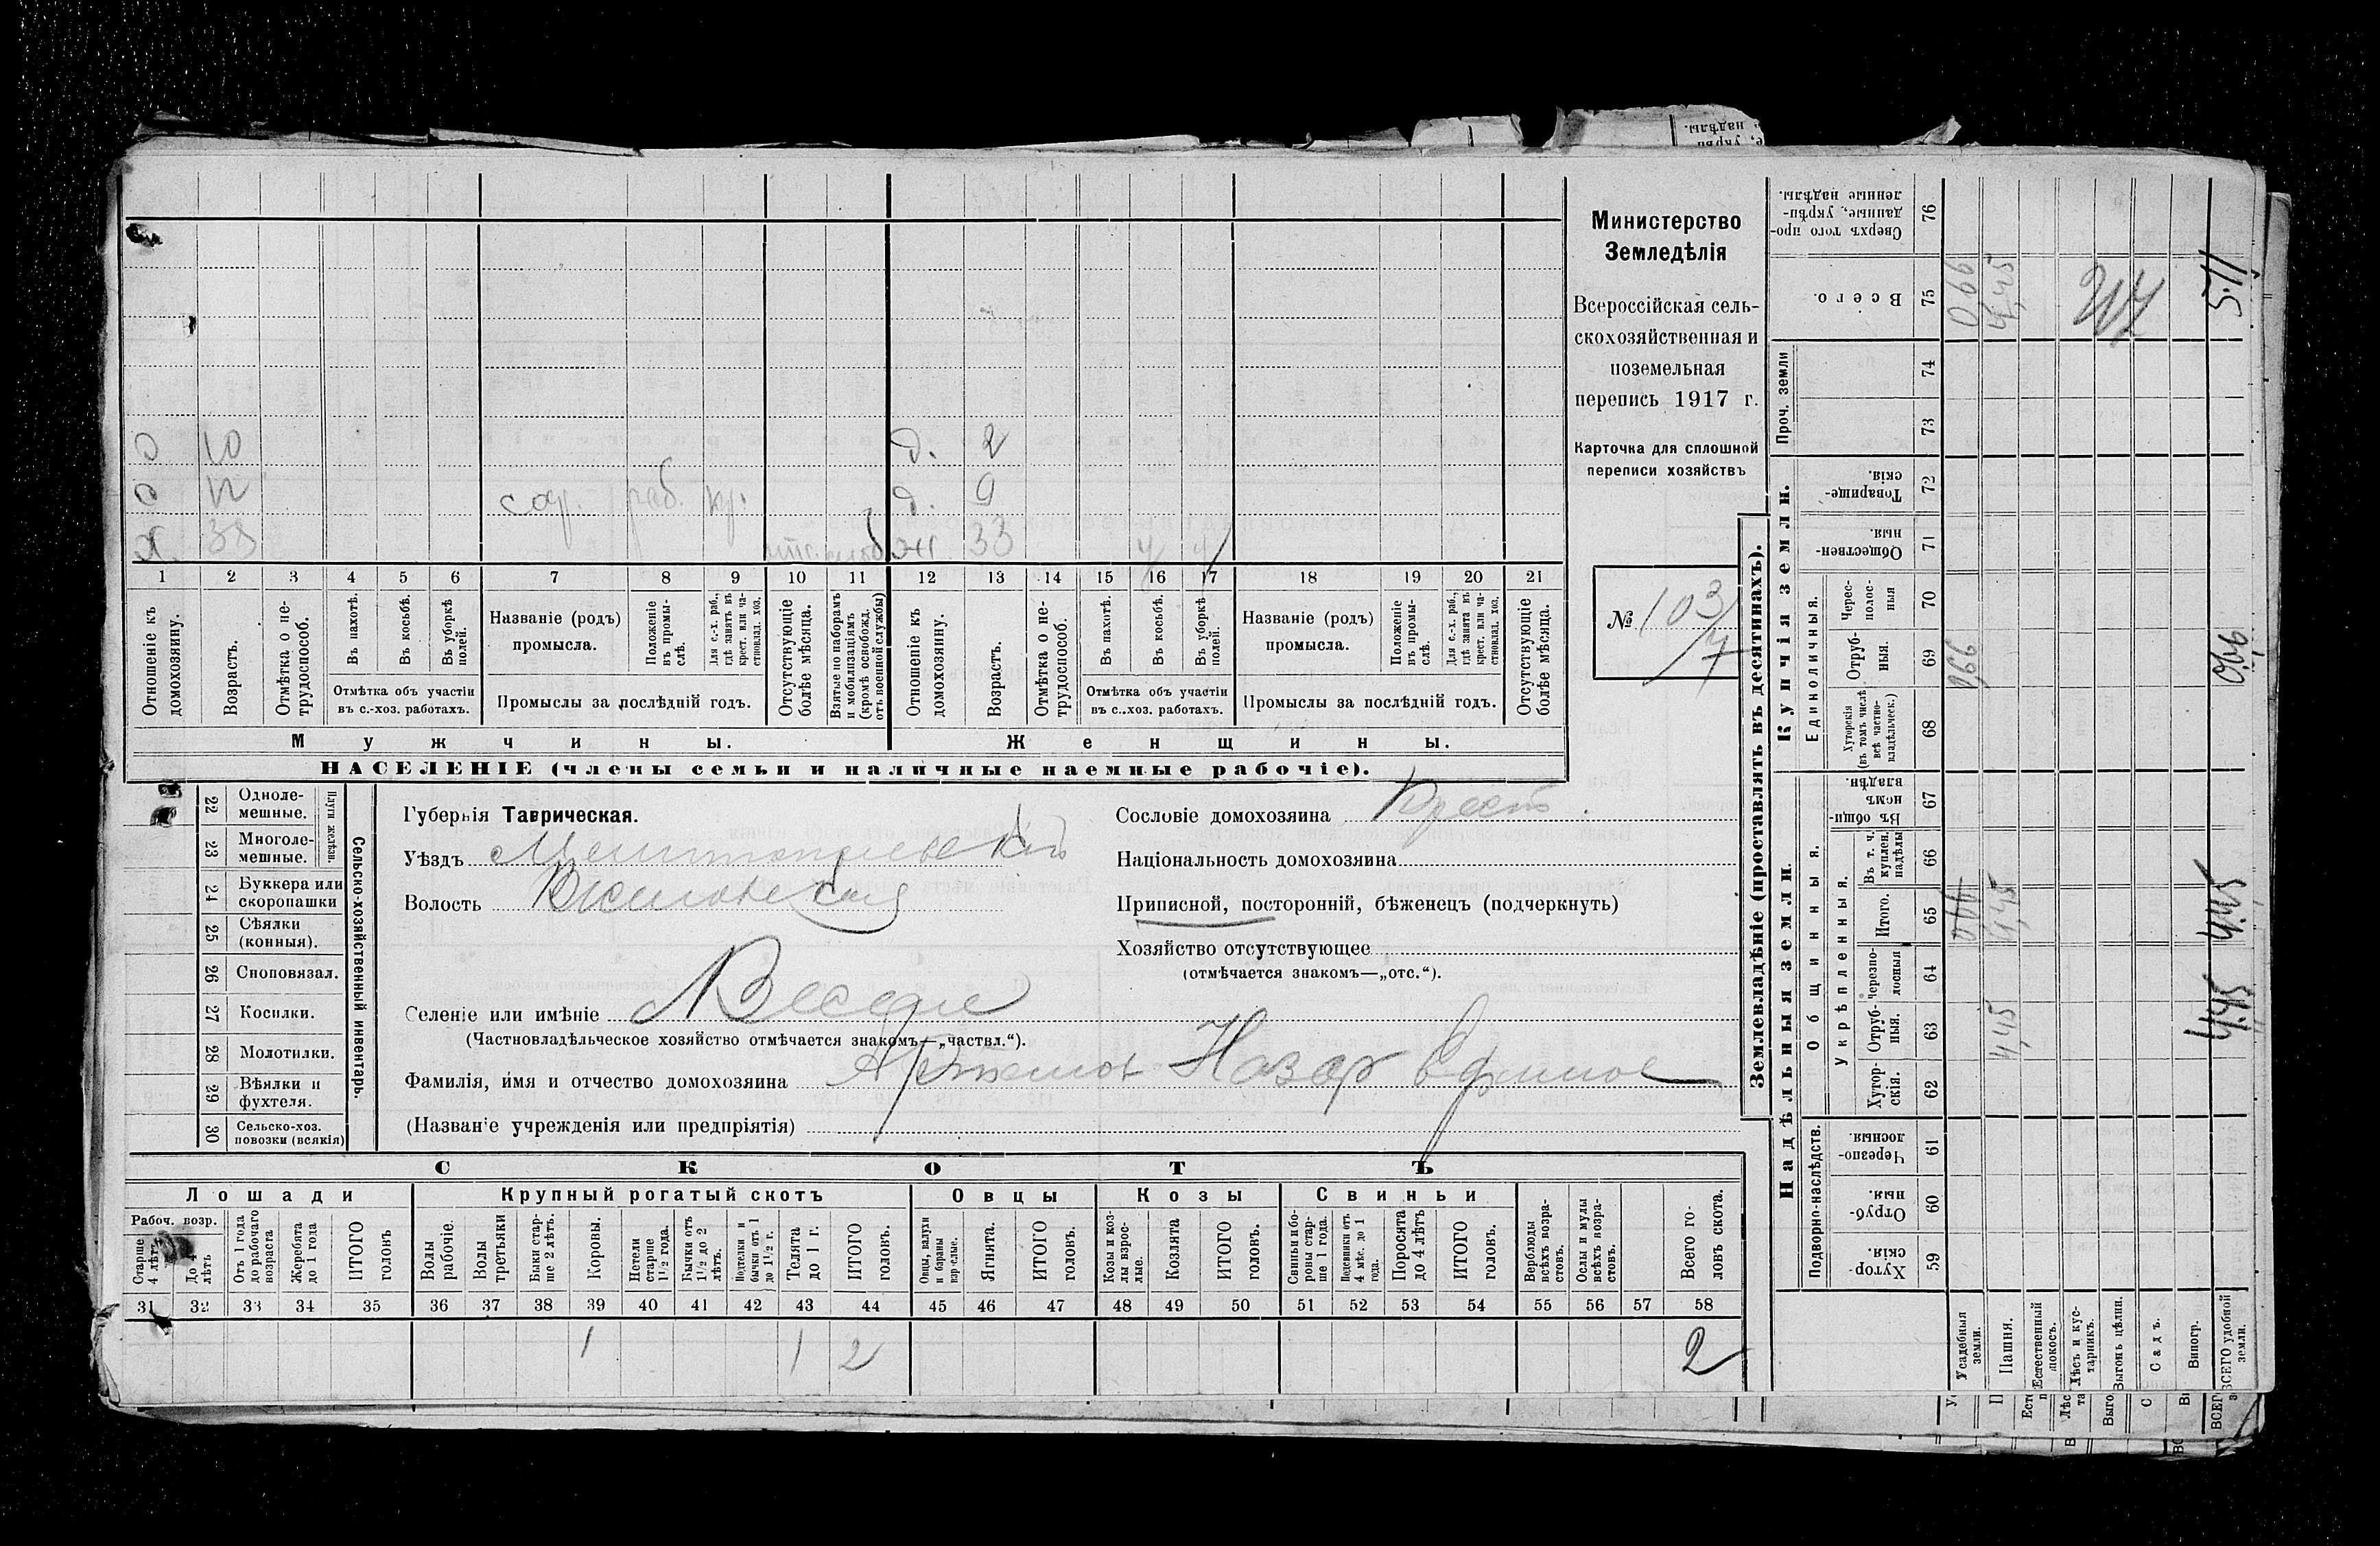 Министерство
Земледѣлія
Всероссійская сель-
скохозяйственная и
поземельная
перепись 1917 г.
Карточка для сплошной
переписи хозяйствъ
№ 103/7
о 10 д. 2
о 12 раб. кр. д. 9
х. 38 ж 33
1 2 3 4 5 6 7 8 9 10 11 12 13 14 15 16 17 18 19 20 21
Отношеніе къ домохозяину.
Возрастъ.
Отмѣтка о не-трудоспособ.
Въ пахотѣ.
Въ косьбѣ.
Въ уборкѣ полей.
Отмѣтка объ участіи
въ с.-хоз. работахъ.
Названіе (родъ)
промысла.
Положеніе въ промы-слѣ.
Для с.-х. раб., гдѣ занятъ въ крест. или ча-стновлад. хоз.
Промыслы за послѣдній годъ.
Отсутствующіе болѣе мѣсяца.
Взятые по наборамъ и мобилизаціямъ (кромѣ освобожд. отъ военной службы)
Отношеніе къ домохозяину.
Возрастъ.
Отмѣтка о не-трудоспособ.
Въ пахотѣ.
Въ косьбѣ.
Въ уборкѣ полей.
Отмѣтка объ участіи
въ с.-хоз. работахъ.
Названіе (родъ)
промысла.
Положеніе въ промы-слѣ.
Для с.-х. раб., гдѣ занята въ крест. или ча-стновлад. хоз.
Промыслы за послѣдній годъ.
Отсутствующіе болѣе мѣсяца.
Мужчины.
Женщины.
НАСЕЛЕНІЕ (члены семьи и наличные наемные рабочіе).
Сельско-хозяйственный инвентарь.
Плуги желѣзн.
22 Одноле-мешные.
23 Многоле-мешные.
24 Буккера или скоропашки
25 Сѣялки (конныя).
26 Сноповязал.
27 Косилки.
28 Молотилки.
29 Вѣялки и фухтеля.
30 Сельско-хоз. повозки (всякія)
Губернія Таврическая.
Уѣздъ Мелитопольскій
Волость
Селеніе или имѣніе Веселе
(Частновладѣльческое хозяйство отмѣчается знакомъ—„частвл.“).
Фамилія, имя и отчество домохозяина Артемов Назар Ефимов
(Названіе учрежденія или предпріятія)
Сословіе домохозяина Крест.
Національность домохозяина
Приписной, посторонній, бѣженецъ (подчеркнуть)
Хозяйство отсутствующее
(отмѣчается знакомъ—„отс.“).
СКОТЪ
Лошади
Крупный рогатый скотъ
Овцы
Козы
Свиньи
Рабоч. возр.
Старше 4 лѣтъ
До 4 лѣтъ
Отъ 1 года до рабочаго возраста
Жеребята до 1 года
ИТОГО головъ
Волы рабочіе
Волы третьяки
Быки стар-ше 2 лѣтъ.
Коровы.
Нетели старше 1½ года.
Бычки отъ 1½ до 2 лѣтъ.
Подтелки и бычки отъ 1 до 1½ г.
Телята до 1 г.
ИТОГО головъ.
Овцы, валухи и бараны взрослые.
Ягнята.
ИТОГО головъ.
Козы и коз-лы взрос-лые.
Козлята
ИТОГО головъ.
Свиньи и бо-ровы стар-ше 1 года.
Подсвинки отъ 4 мѣс. до 1 года.
Поросята до 4 лѣтъ
ИТОГО головъ.
Верблюды всѣхъ возра-стовъ.
Ослы и мулы всѣхъ возра-стовъ.
Всего го-ловъ скота.
31 32 33 34 35 36 37 38 39 40 41 42 43 44 45 46 47 48 49 50 51 52 53 54 55 56 57 58
1 1 2 2
Землевладѣніе (проставлять въ десятинахъ).
Надѣльныя земли.
Купчія земли.
Проч. земли
Подворно-наслѣдств.
Общинныя.
Укрѣпленныя.
Единоличныя.
Хутор-скія. 59
Отруб-ныя. 60
Черезпо-лосныя 61
Хутор-скія. 62
Отруб-ныя. 63
Черезпо-лосныя 64
Итого. 65
Въ т. ч. куплен. надѣлы 66
Въ общи-номъ владѣн. 67
Хуторскія (въ томъ числѣ всѣ частно-владѣльческ.) 68
Отруб-ныя. 69
Черес-полос-ныя 70
Обществен-ныя 71
Товарище-скія. 72
73
74
Всего. 75
Сверхъ того про-данные, укрѣп-ленные надѣлы. 76
Усадебныя земли. 0,66 0,66
Пашня. 4,45 4,45 4,45
Естественный покосъ.
Лѣсъ и кус-тарникъ.
Выгонъ цѣлин.
Садъ.
Виногр.
ВСЕГО удобной земли. 4.45 4.45 0.66 5.11